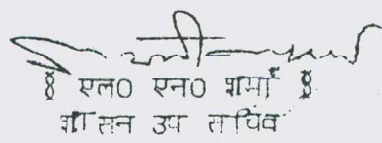 ( एल0 एन0 शर्मा )
शासन उप सचिव